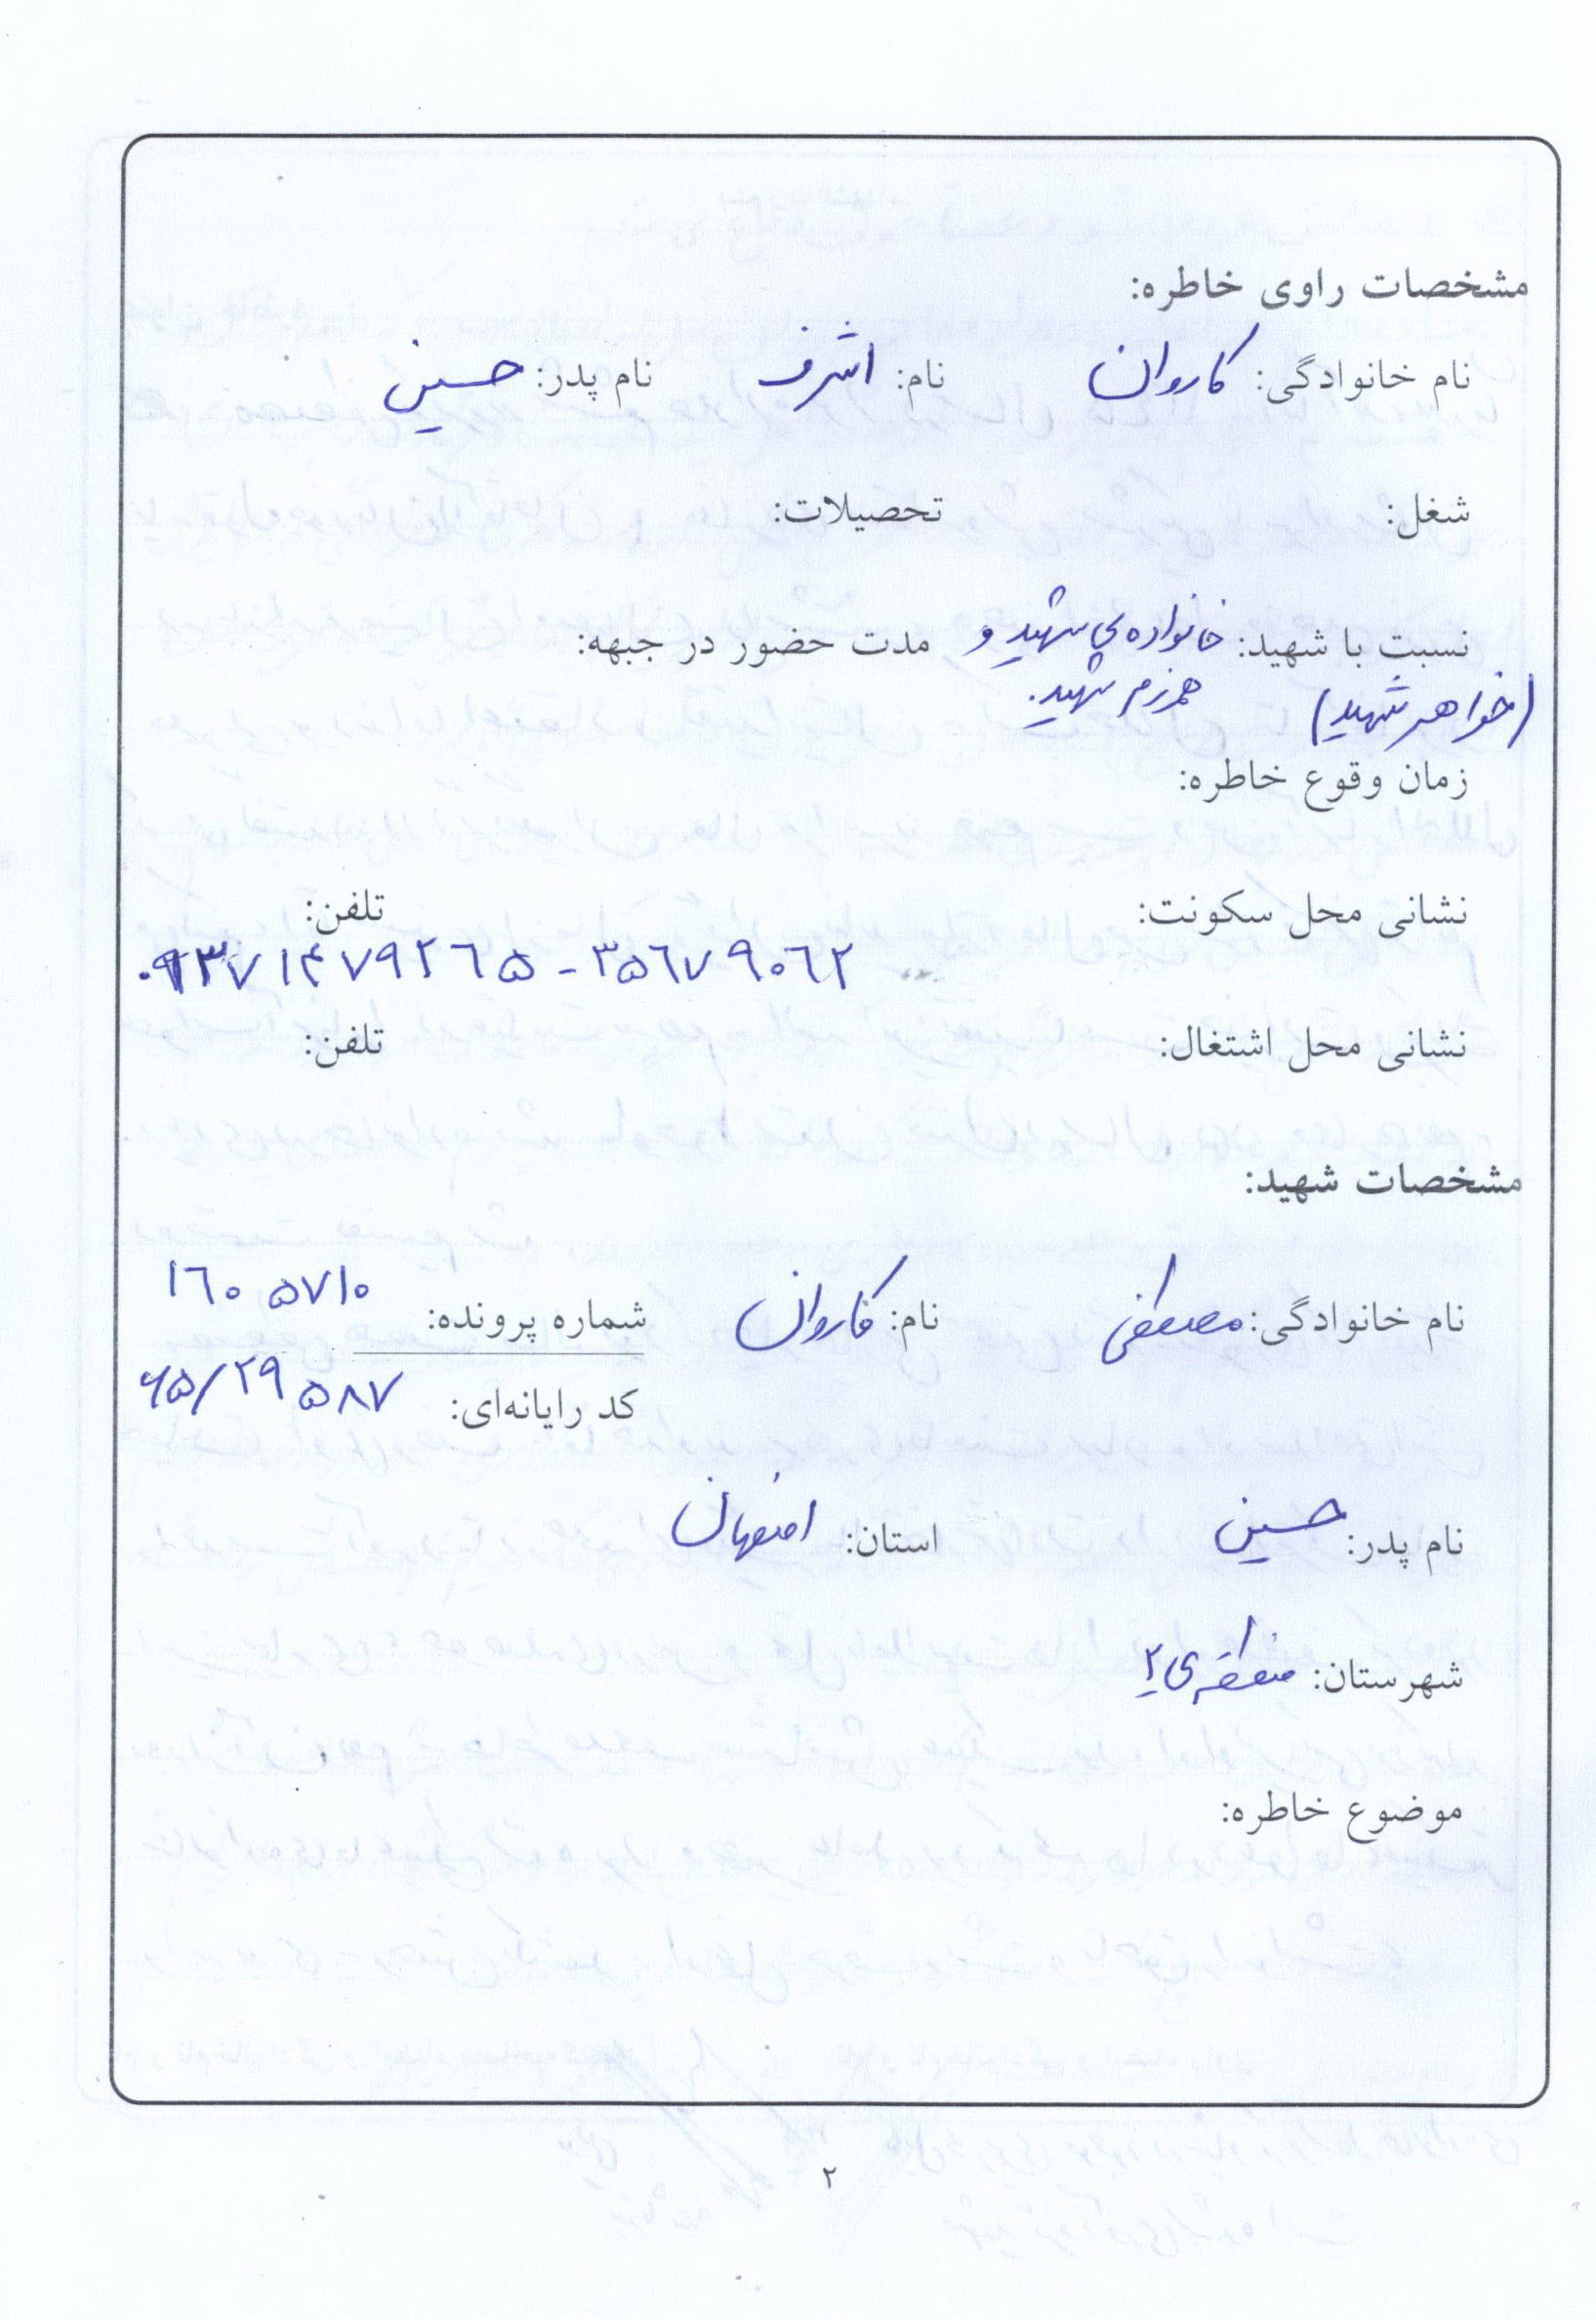 مشخصات راوی خاطره:
نام خانوادگی: کاروان نام: اشرف نام پدر: حسین
شغل: تحصیلات:
نسبت با شهید: خانواده‌ی شهید و مدت حضور در جبهه:
(خواهر شهید) همرزم شهید.
زمان وقوع خاطره:
نشانی محل سکونت: تلفن:
۰۹۳۷۱۴۷۹۲۶۵ - ۳۵۶۷۹۰۶۲
نشانی محل اشتغال: تلفن:
مشخصات شهید:
نام خانوادگی: مصطفی نام: کاروان شماره پرونده: ۱۶۰۵۷۱۰
کد رایانه‌ای: ۶۵/۲۹۵۸۷
نام پدر: حسین استان: اصفهان
شهرستان: منطقه‌ی ۲
موضوع خاطره:
۲